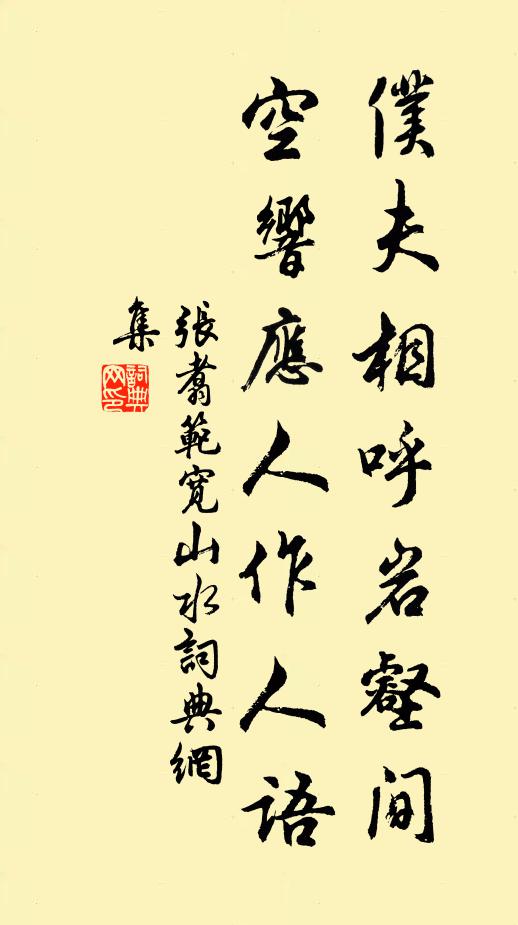 僕夫相呼岩壑间
空響應人作人語
張翥範寬山水詞典網
集
詞典網印